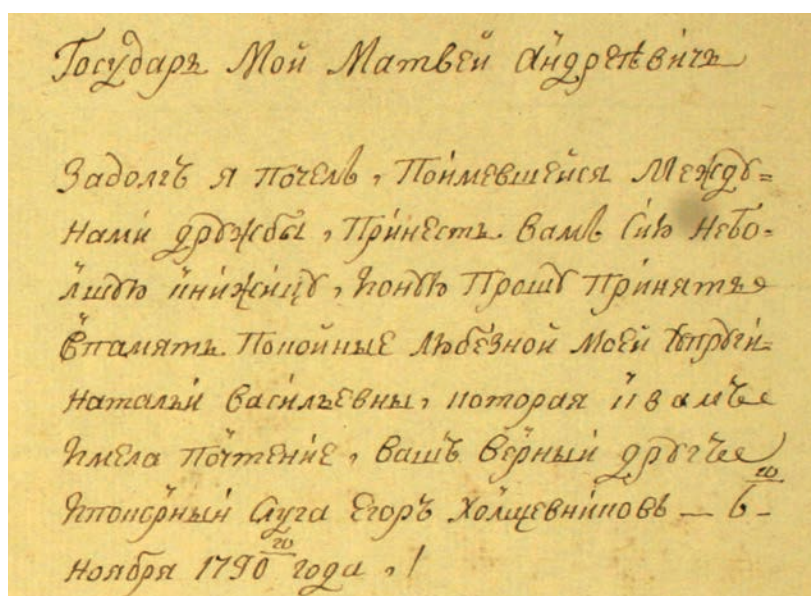 Государь Мой Матвей Андреѣвичь
Задолгъ я почелъ, Поимевшейся Между=
нами дружбы, Принесть вамъ Сию небо-
лшую книжицу, кою Прошу Принять
впамять Покойные Любезной Моей Супруги
Натальи Васильевны, которая и вамъ
имела почтение, вашъ верный другъ
ипокорный Слуга Егоръ Холщевниковъ — 6го -
Ноября 1790го года ,!